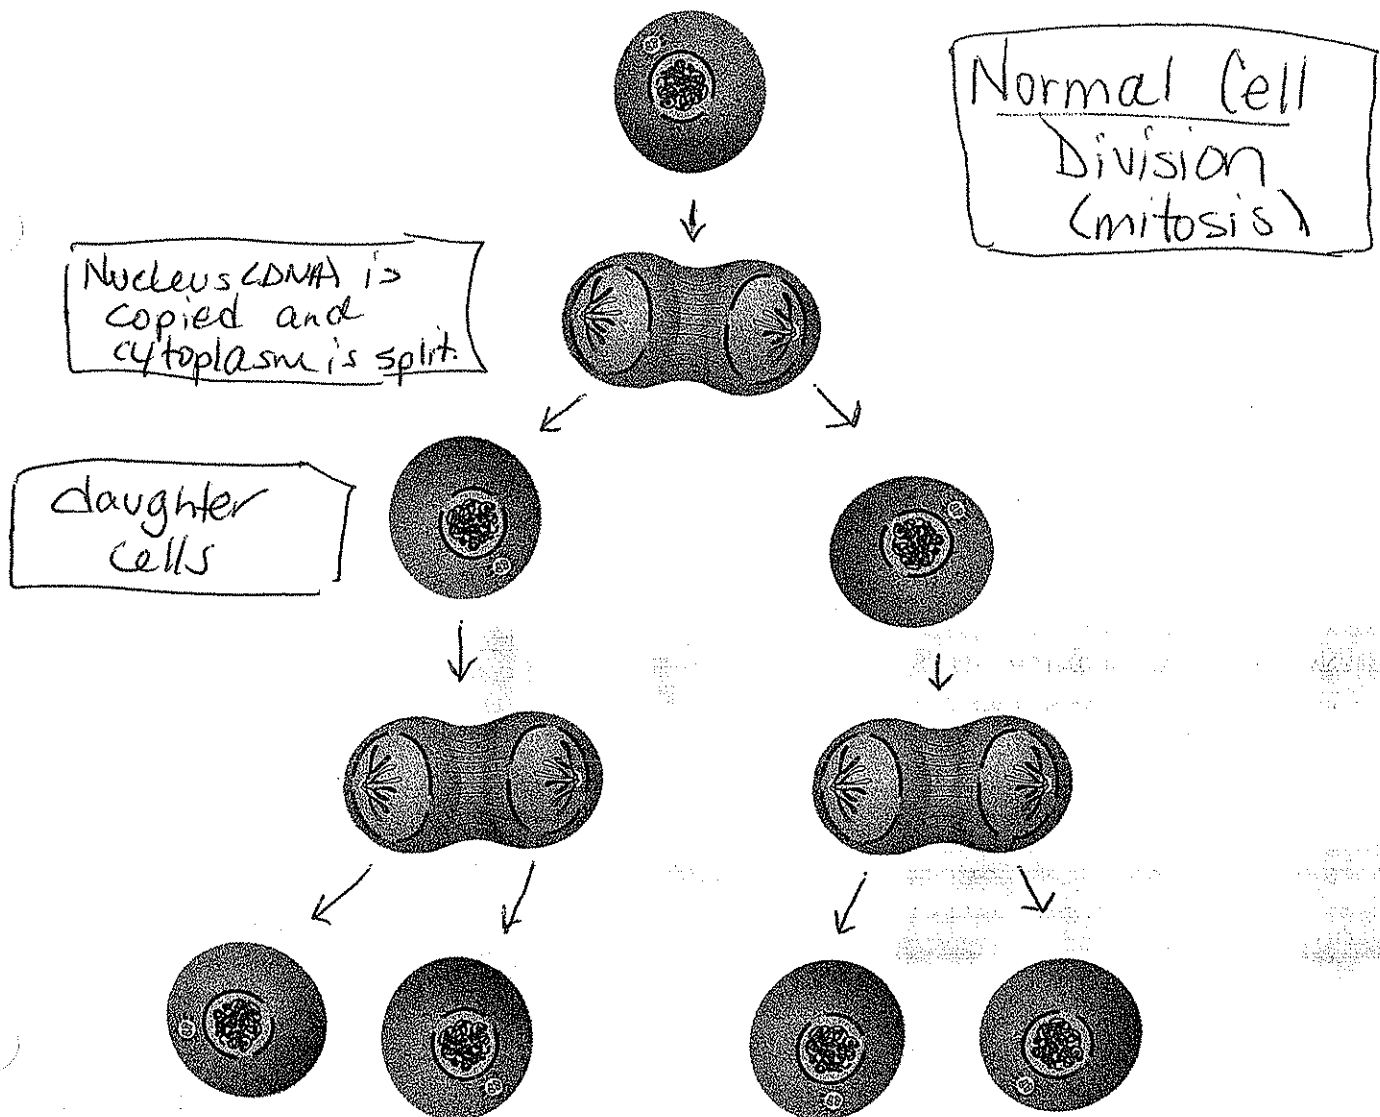 Normal Cell
Division
(mitosis)
Nucleus (DNA) is
copied and
cytoplasm is split.
daughter
cells